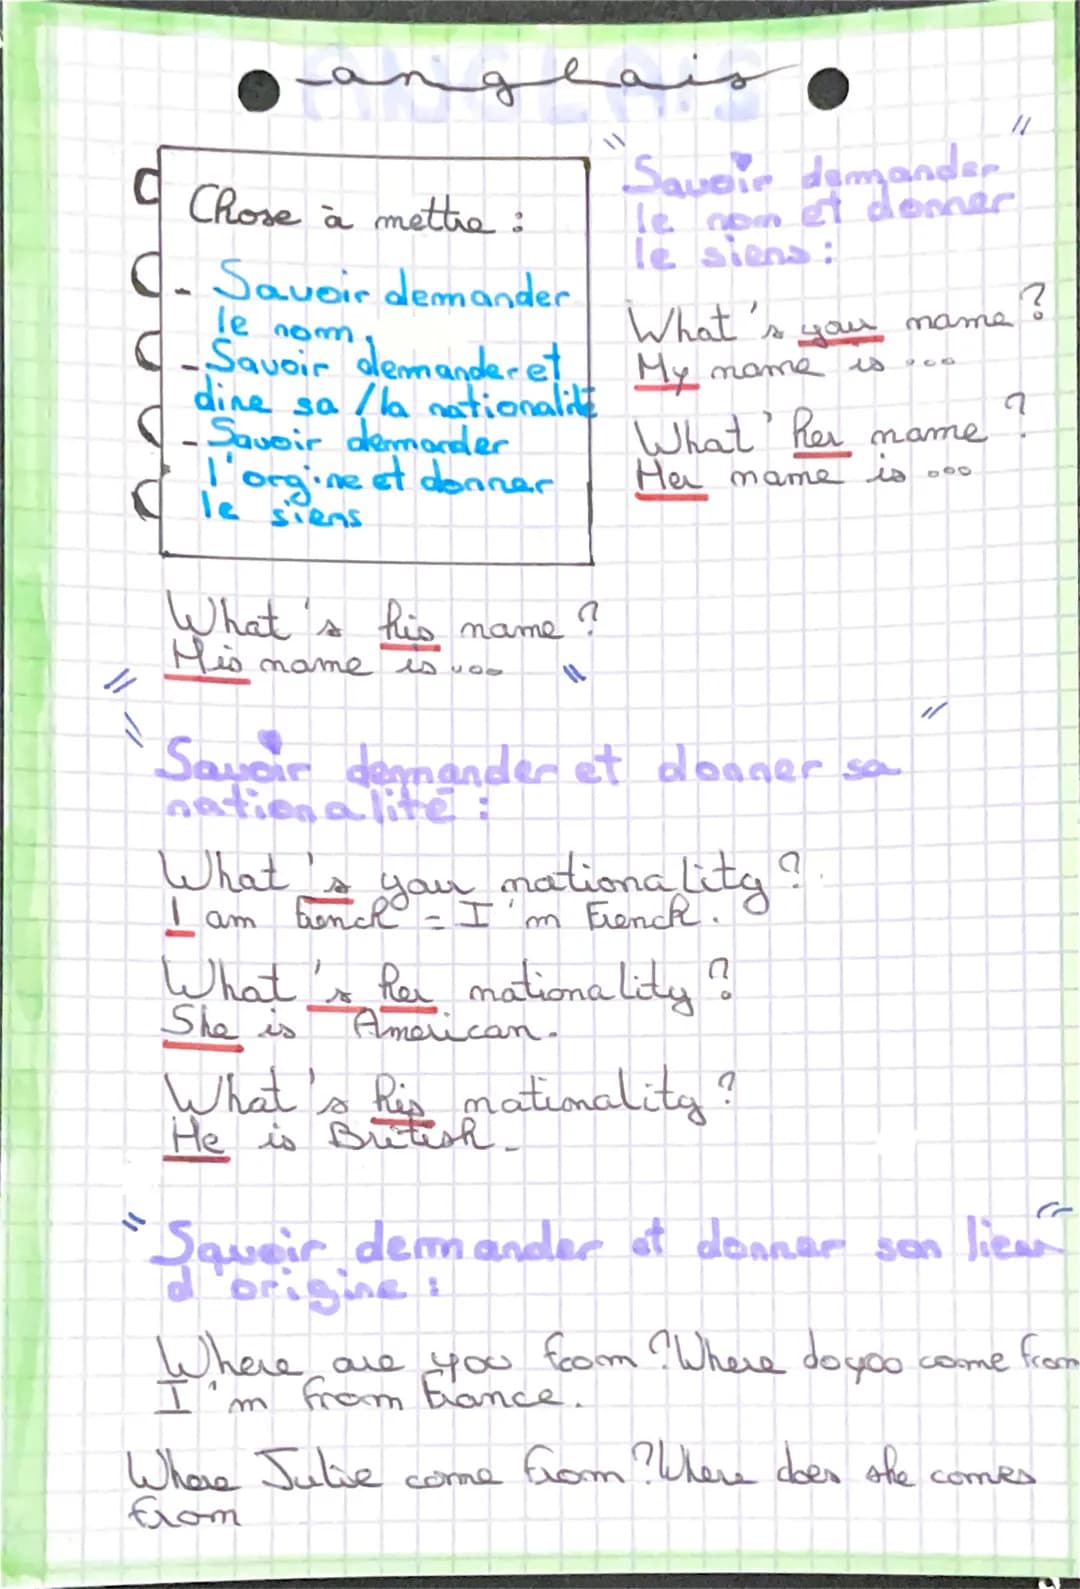 anglais
Chose à mettre :
- Savoir demander
le nom,
- Savoir demander et
dire sa / la nationalité
- Savoir demander
l'orgine et donner
le siens
"Savoir demander"
le nom et donner
le siens :
What's your name ?
My name is ...
What' her name ?
Her name is ...
What's his name ?
His name is ...
"Savoir demander et donner sa"
nationalité :
What's your nationality ?
I am French = I'm French.
What's her nationality ?
She is American.
What's his nationality ?
He is British.
"Savoir demander et donner son lieu"
d'origine :
Where are you from ? Where do you come from
I'm from France.
Where Julie come from ? Where does she comes
from